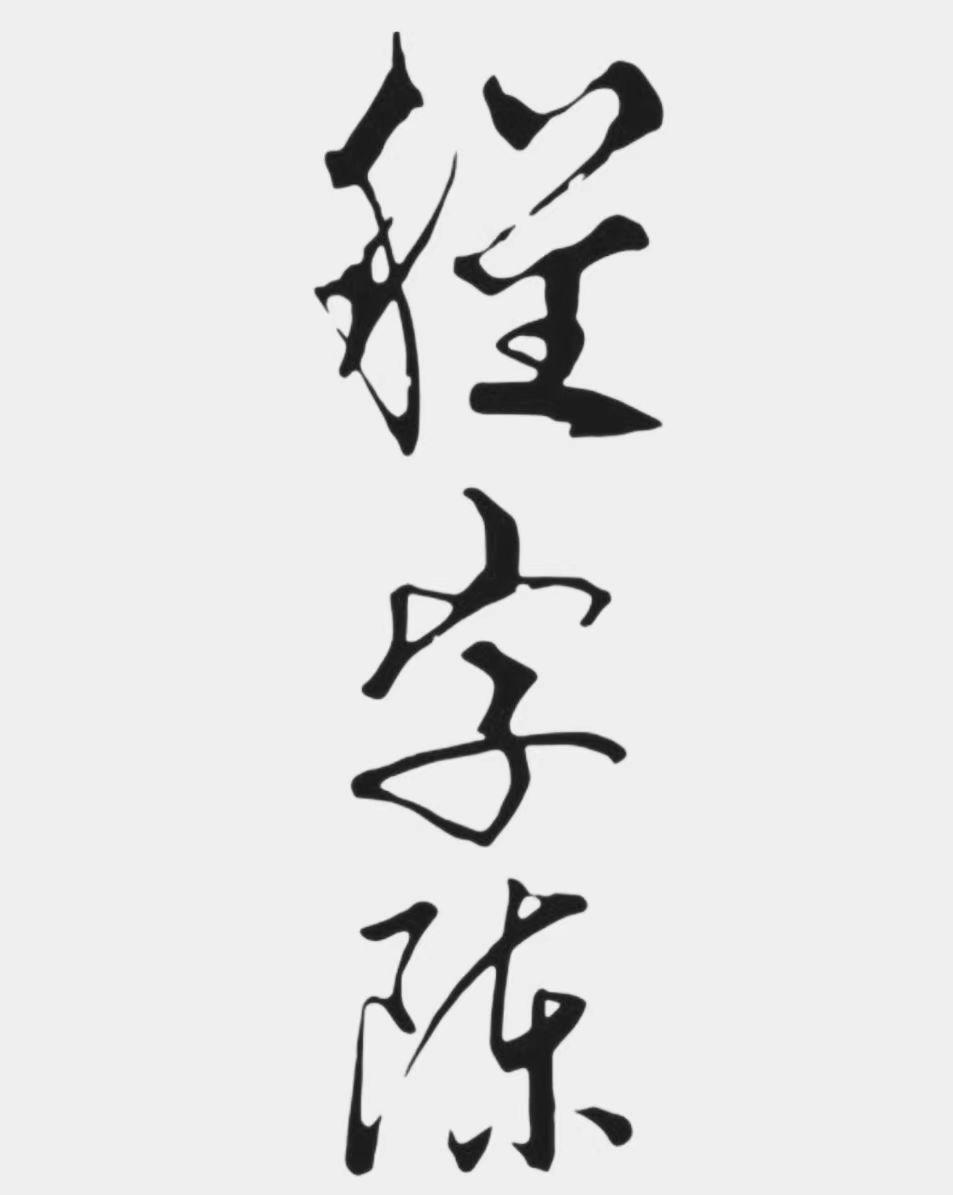 程字陈